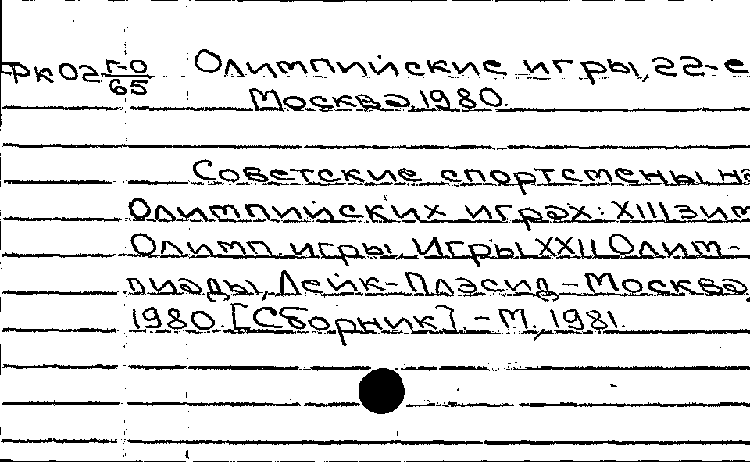 Фк02 Г-0/65 Олимпийские игры, 22-е
Москва, 1980.
Советские спортсмены на
Олимпийских играх: XIII зим.
Олимп. игры, Игры XXII Олим-
пиады, Лейк-Плэсид - Москва,
1980. [Сборник]. - М., 1981.